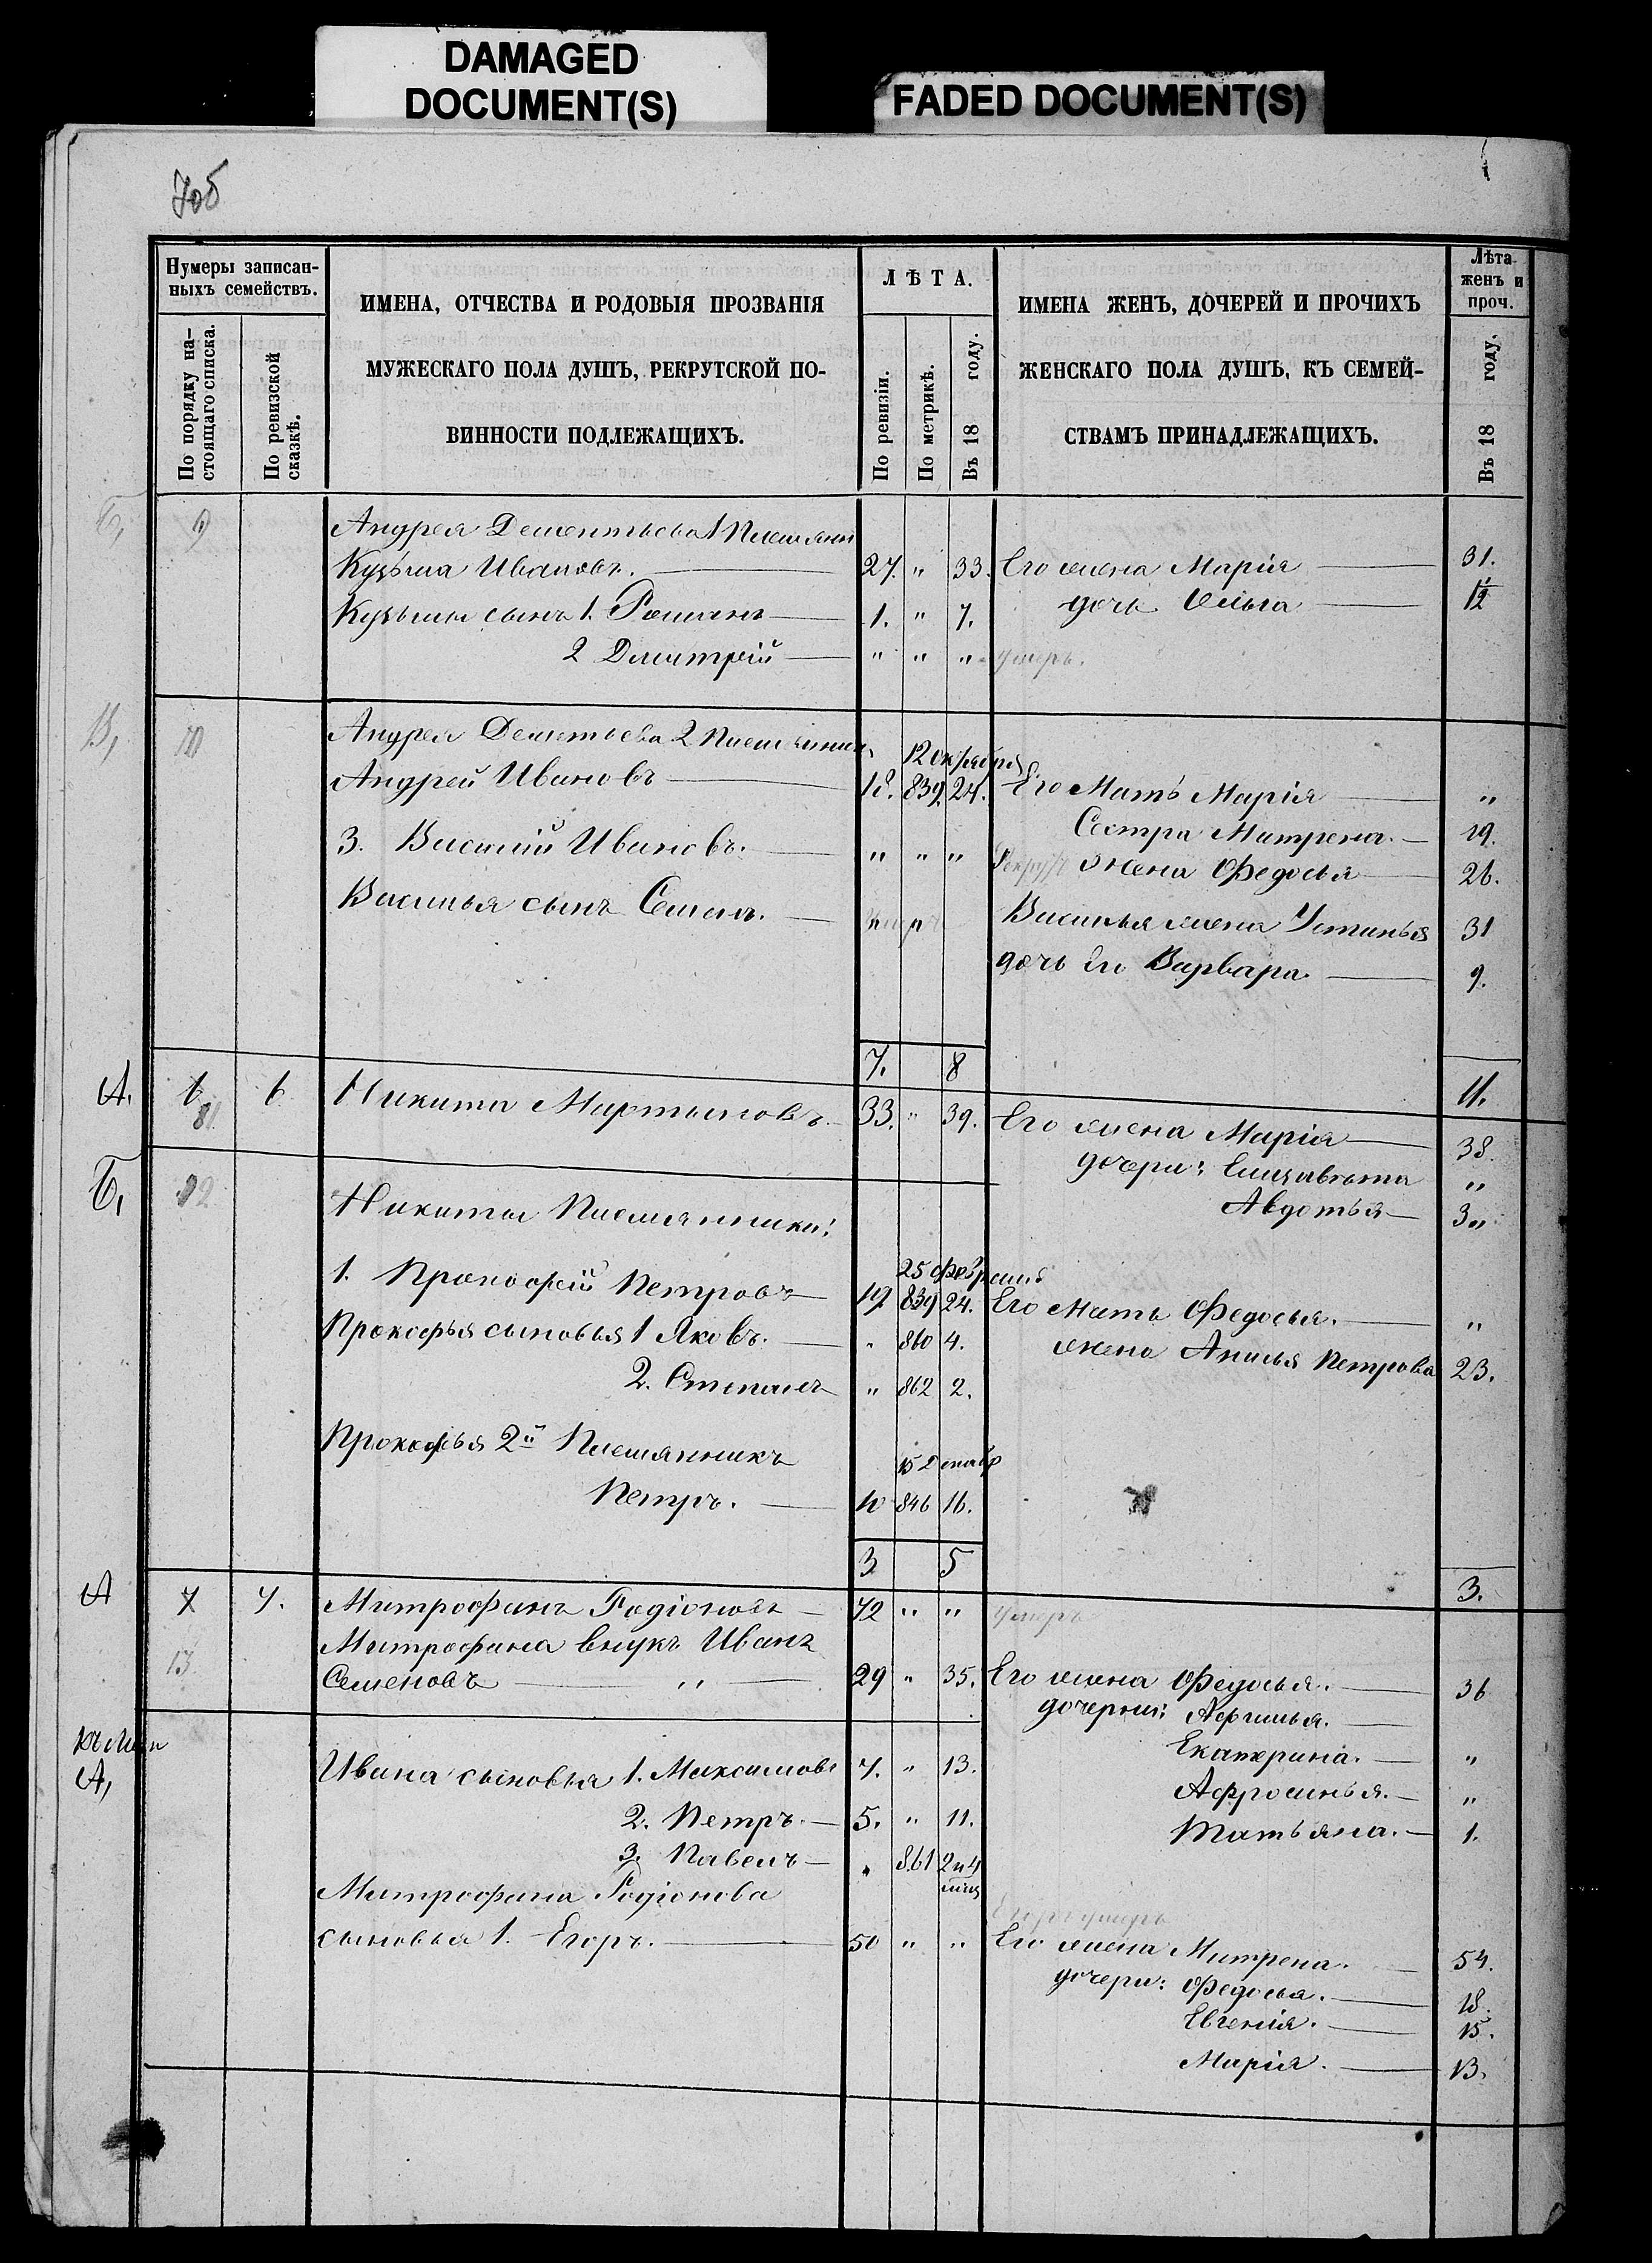 DAMAGED
DOCUMENT(S)
FADED DOCUMENT(S)
Нумеры записан-
ныхъ семействъ.
По порядку на-
стоящаго списка.
По ревизской
сказкѣ.
ИМЕНА, ОТЧЕСТВА И РОДОВЫЯ ПРОЗВАНІЯ
МУЖЕСКАГО ПОЛА ДУШЪ, РЕКРУТСКОЙ ПО-
ВИННОСТИ ПОДЛЕЖАЩИХЪ.
ЛѢТА.
По ревизіи.
По метрикѣ.
Въ 18 году.
ИМЕНА ЖЕНЪ, ДОЧЕРЕЙ И ПРОЧИХЪ
ЖЕНСКАГО ПОЛА ДУШЪ, КЪ СЕМЕЙ-
СТВАМЪ ПРИНАДЛЕЖАЩИХЪ.
Лѣта
женъ и
проч.
Въ 18 году.
Б, 9 Андрея Дементьева 1 Племянни
Кузьма Ивановъ. 27. " 33. Его жена Марія 31.
Кузьмы сынъ 1. Романъ 1. " 7. дочь Ольга
2 Дмитрій " " " умеръ.
В, 10 Андрея Дементьева 2 Племянник
12 октября
Андрей Ивановъ 18. 839. 24. Его Мать Марія "
Сестра Матрена. 19.
3. Василій Ивановъ. " " " жена Федосья 26.
Василья сынъ Семенъ. умеръ Василья жена Устинья 31
дочь Его Варвара. 9.
7. 8 11.
А. 6 6 Никита Мартыновъ 33. " 39. Его жена Марія 38.
дочери: Елизавѣта "
Авдотья 3"
Б, 12 Никиты Племянники:
25 февраля
1. Прокофій Петровъ 19 839 24. Его Мать Федосья. "
Прокофья сыновья 1 Яковъ. " 860 4. жена Анисья Петрова 23.
2. Степанъ " 862 2.
Прокофья 2й Племянникъ
15 Декабр
Петръ. 10 846 16.
3 5 3.
А 7 7. Митрофанъ Родіоновъ 72 " " умеръ
Митрофана внукъ Иванъ
13. Семеновъ " 29 " 35. Его жена Федосья. 36
дочерни:
Екатерина. "
А,
Ивана сыновья 1. Максимовъ 7. " 13.
Афросинья. "
2. Петръ. 5. " 11.
Татьяна. 1.
3. Павелъ " 861 2 и 4
Митрофана Родіонова
Егоръ умеръ
сыновья 1. Егоръ. 50 " " Его жена Матрена. 54.
дочери: Федосья. 18.
Евгенія. 15.
Марія. 13.